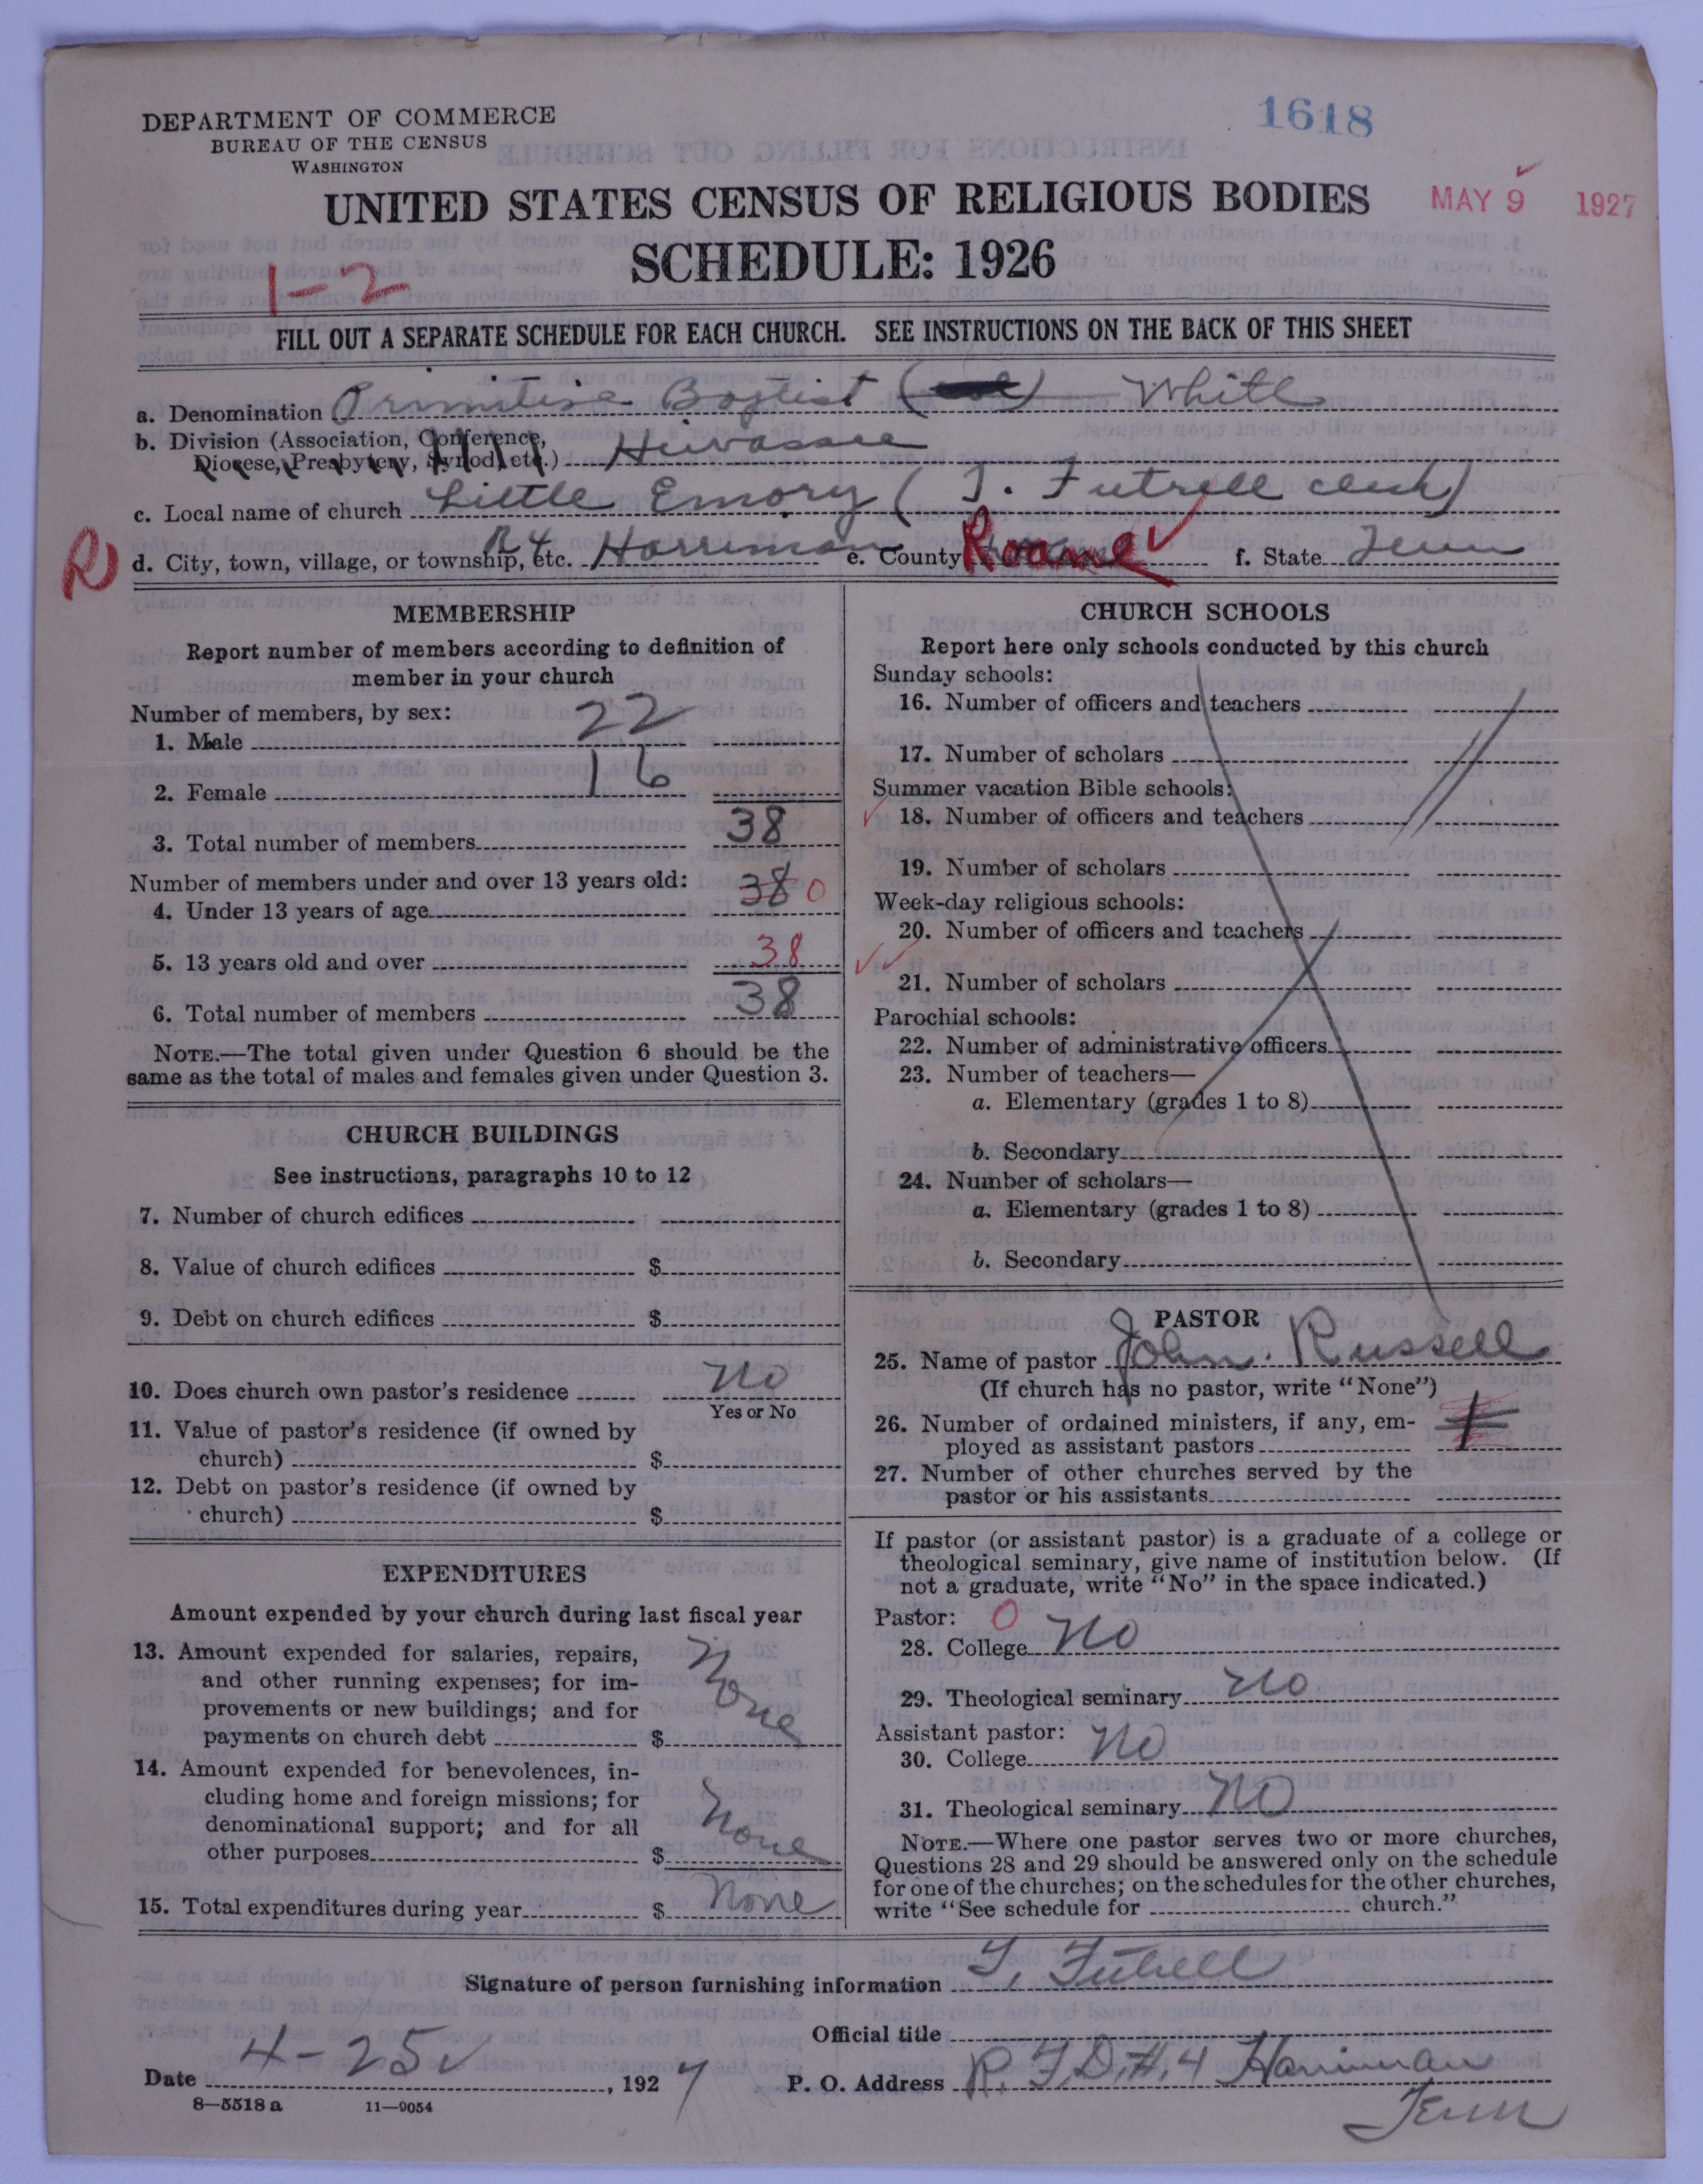 1618
DEPARTMENT OF COMMERCE
BUREAU OF THE CENSUS
WASHINGTON
UNITED STATES CENSUS OF RELIGIOUS BODIES
MAY 9 1927
SCHEDULE: 1926
1-2
FILL OUT A SEPARATE SCHEDULE FOR EACH CHURCH. SEE INSTRUCTIONS ON THE BACK OF THIS SHEET
a. Denomination Primitive Baptist ( ) White
b. Division (Association, Conference,
Diocese, Presbytery, Synod, etc.) Hiwassee
c. Local name of church Little Emory ( T. Futrell clerk)
R d. City, town, village, or township, etc. R 4 Harriman e. County Roane f. State Tenn
MEMBERSHIP
Report number of members according to definition of
member in your church
Number of members, by sex:
1. Male 22
2. Female 16
3. Total number of members 38
Number of members under and over 13 years old:
4. Under 13 years of age 38 0
5. 13 years old and over 38
6. Total number of members 38
NOTE.—The total given under Question 6 should be the
same as the total of males and females given under Question 3.
CHURCH BUILDINGS
See instructions, paragraphs 10 to 12
7. Number of church edifices
8. Value of church edifices $
9. Debt on church edifices $
10. Does church own pastor's residence No
Yes or No
11. Value of pastor's residence (if owned by
church) $
12. Debt on pastor's residence (if owned by
church) $
EXPENDITURES
Amount expended by your church during last fiscal year
13. Amount expended for salaries, repairs,
and other running expenses; for im-
provements or new buildings; and for
payments on church debt $ None
14. Amount expended for benevolences, in-
cluding home and foreign missions; for
denominational support; and for all
other purposes $ None
15. Total expenditures during year $ None
CHURCH SCHOOLS
Report here only schools conducted by this church
Sunday schools:
16. Number of officers and teachers
17. Number of scholars
Summer vacation Bible schools:
18. Number of officers and teachers
19. Number of scholars
Week-day religious schools:
20. Number of officers and teachers
21. Number of scholars
Parochial schools:
22. Number of administrative officers
23. Number of teachers—
a. Elementary (grades 1 to 8)
b. Secondary
24. Number of scholars—
a. Elementary (grades 1 to 8)
b. Secondary
PASTOR
25. Name of pastor John. Russell
(If church has no pastor, write "None")
26. Number of ordained ministers, if any, em-
ployed as assistant pastors
27. Number of other churches served by the
pastor or his assistants
If pastor (or assistant pastor) is a graduate of a college or
theological seminary, give name of institution below. (If
not a graduate, write "No" in the space indicated.)
Pastor: 0
28. College No
29. Theological seminary No
Assistant pastor:
30. College No
31. Theological seminary No
NOTE.—Where one pastor serves two or more churches,
Questions 28 and 29 should be answered only on the schedule
for one of the churches; on the schedules for the other churches,
write "See schedule for church."
Signature of person furnishing information T. Futrell
Official title
Date 4-25, 1927 P. O. Address R. F. D. #. 4 Harriman
Tenn
8—5518 a 11—9054